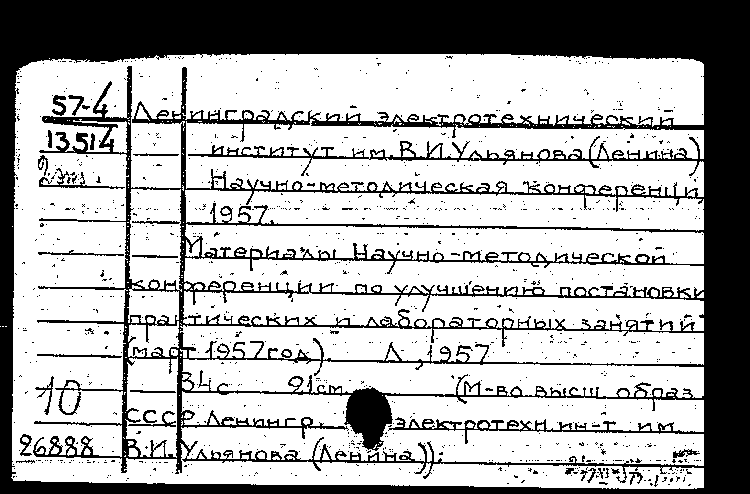 57-4 Ленинградский электротехнический
13514 институт им. В.И.Ульянова (Ленина)
2 экз. Научно-методическая конференци
1957.
Материалы Научно-методической
конференции по улучшению постановки
практических и лабораторных занятий
(март 1957 год). Л, 1957
34с 21см (М-во высш образ
10 СССР Ленингр. электротехн.ин-т им.
26888 В.И. Ульянова (Ленина));